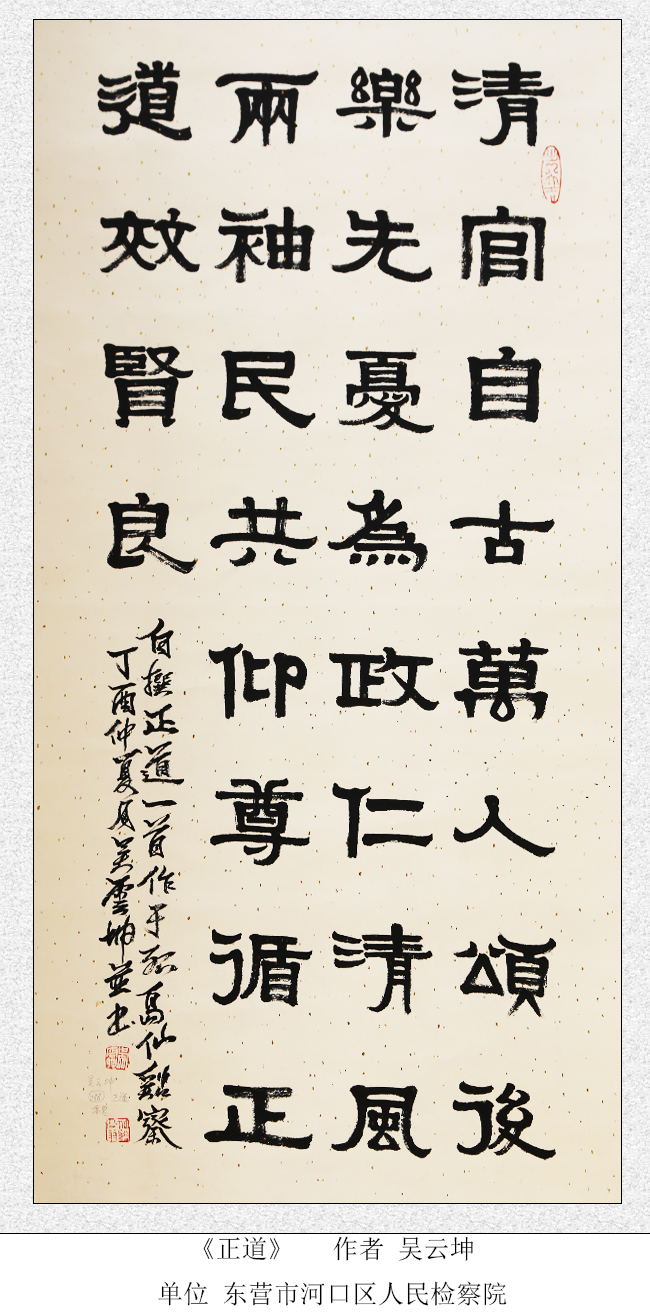 清官自古萬人頌後
樂先憂為政仁清風
兩袖民共仰尊循正
道效賢良
自撰正道一首作于
仙
丁酉仲夏月吴雲坤並书
《正道》 作者 吴云坤
单位 东营市河口区人民检察院